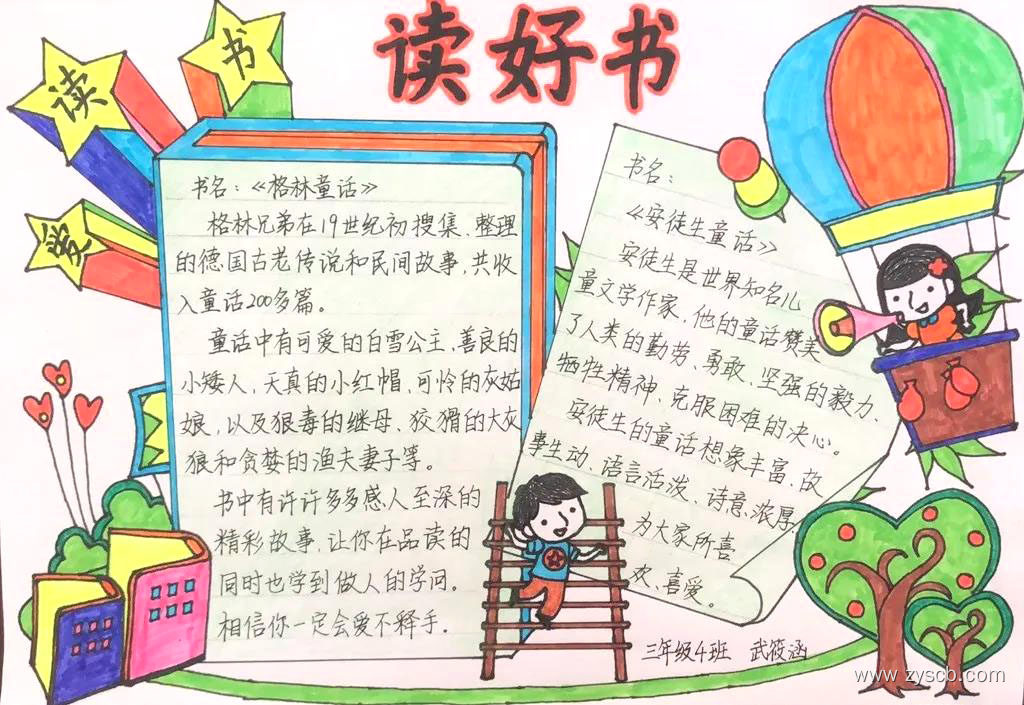 读好书
读
书
爱
书名：《格林童话》
格林兄弟在19世纪初搜集、整理
的德国古老传说和民间故事，共收
入童话200多篇。
童话中有可爱的白雪公主、善良的
小矮人，天真的小红帽，可怜的灰姑
娘，以及狠毒的继母、狡猾的大灰
狼和贪婪的渔夫妻子等。
书中有许许多多感人至深的
精彩故事，让你在品读的
同时也学到做人的学问。
相信你一定会爱不释手．
书名：
《安徒生童话》
安徒生是世界知名儿
童文学作家，他的童话赞美
了人类的勤劳、勇敢、坚强的毅力、
牺牲精神、克服困难的决心。
安徒生的童话想象丰富、故
事生动、语言活泼、诗意浓厚，
为大家所喜
欢、喜爱。
三年级4班 武筱涵
www.zyscb.com